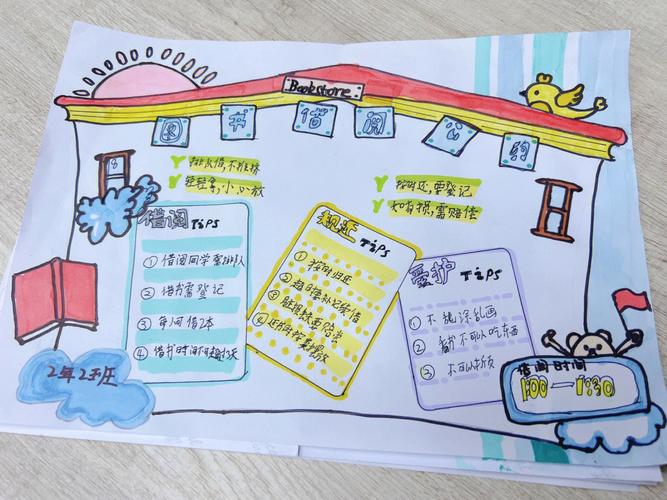 Bookstore
图书借阅公约
8
排队借,不推挤
轻轻拿,小心放
按时还,要登记
如有损,需赔偿
借阅 TiPS
① 借阅同学要排队
② 借书需登记
③ 每次借2本
④ 借书时间不可超过3天
规还 TiPS
① 按时归还
②
③ 破损
④
爱护 TiPS
① 不能涂乱画
② 看书不可以吃东西
③ 不可以
2年2班
借阅时间
1:00—1:30